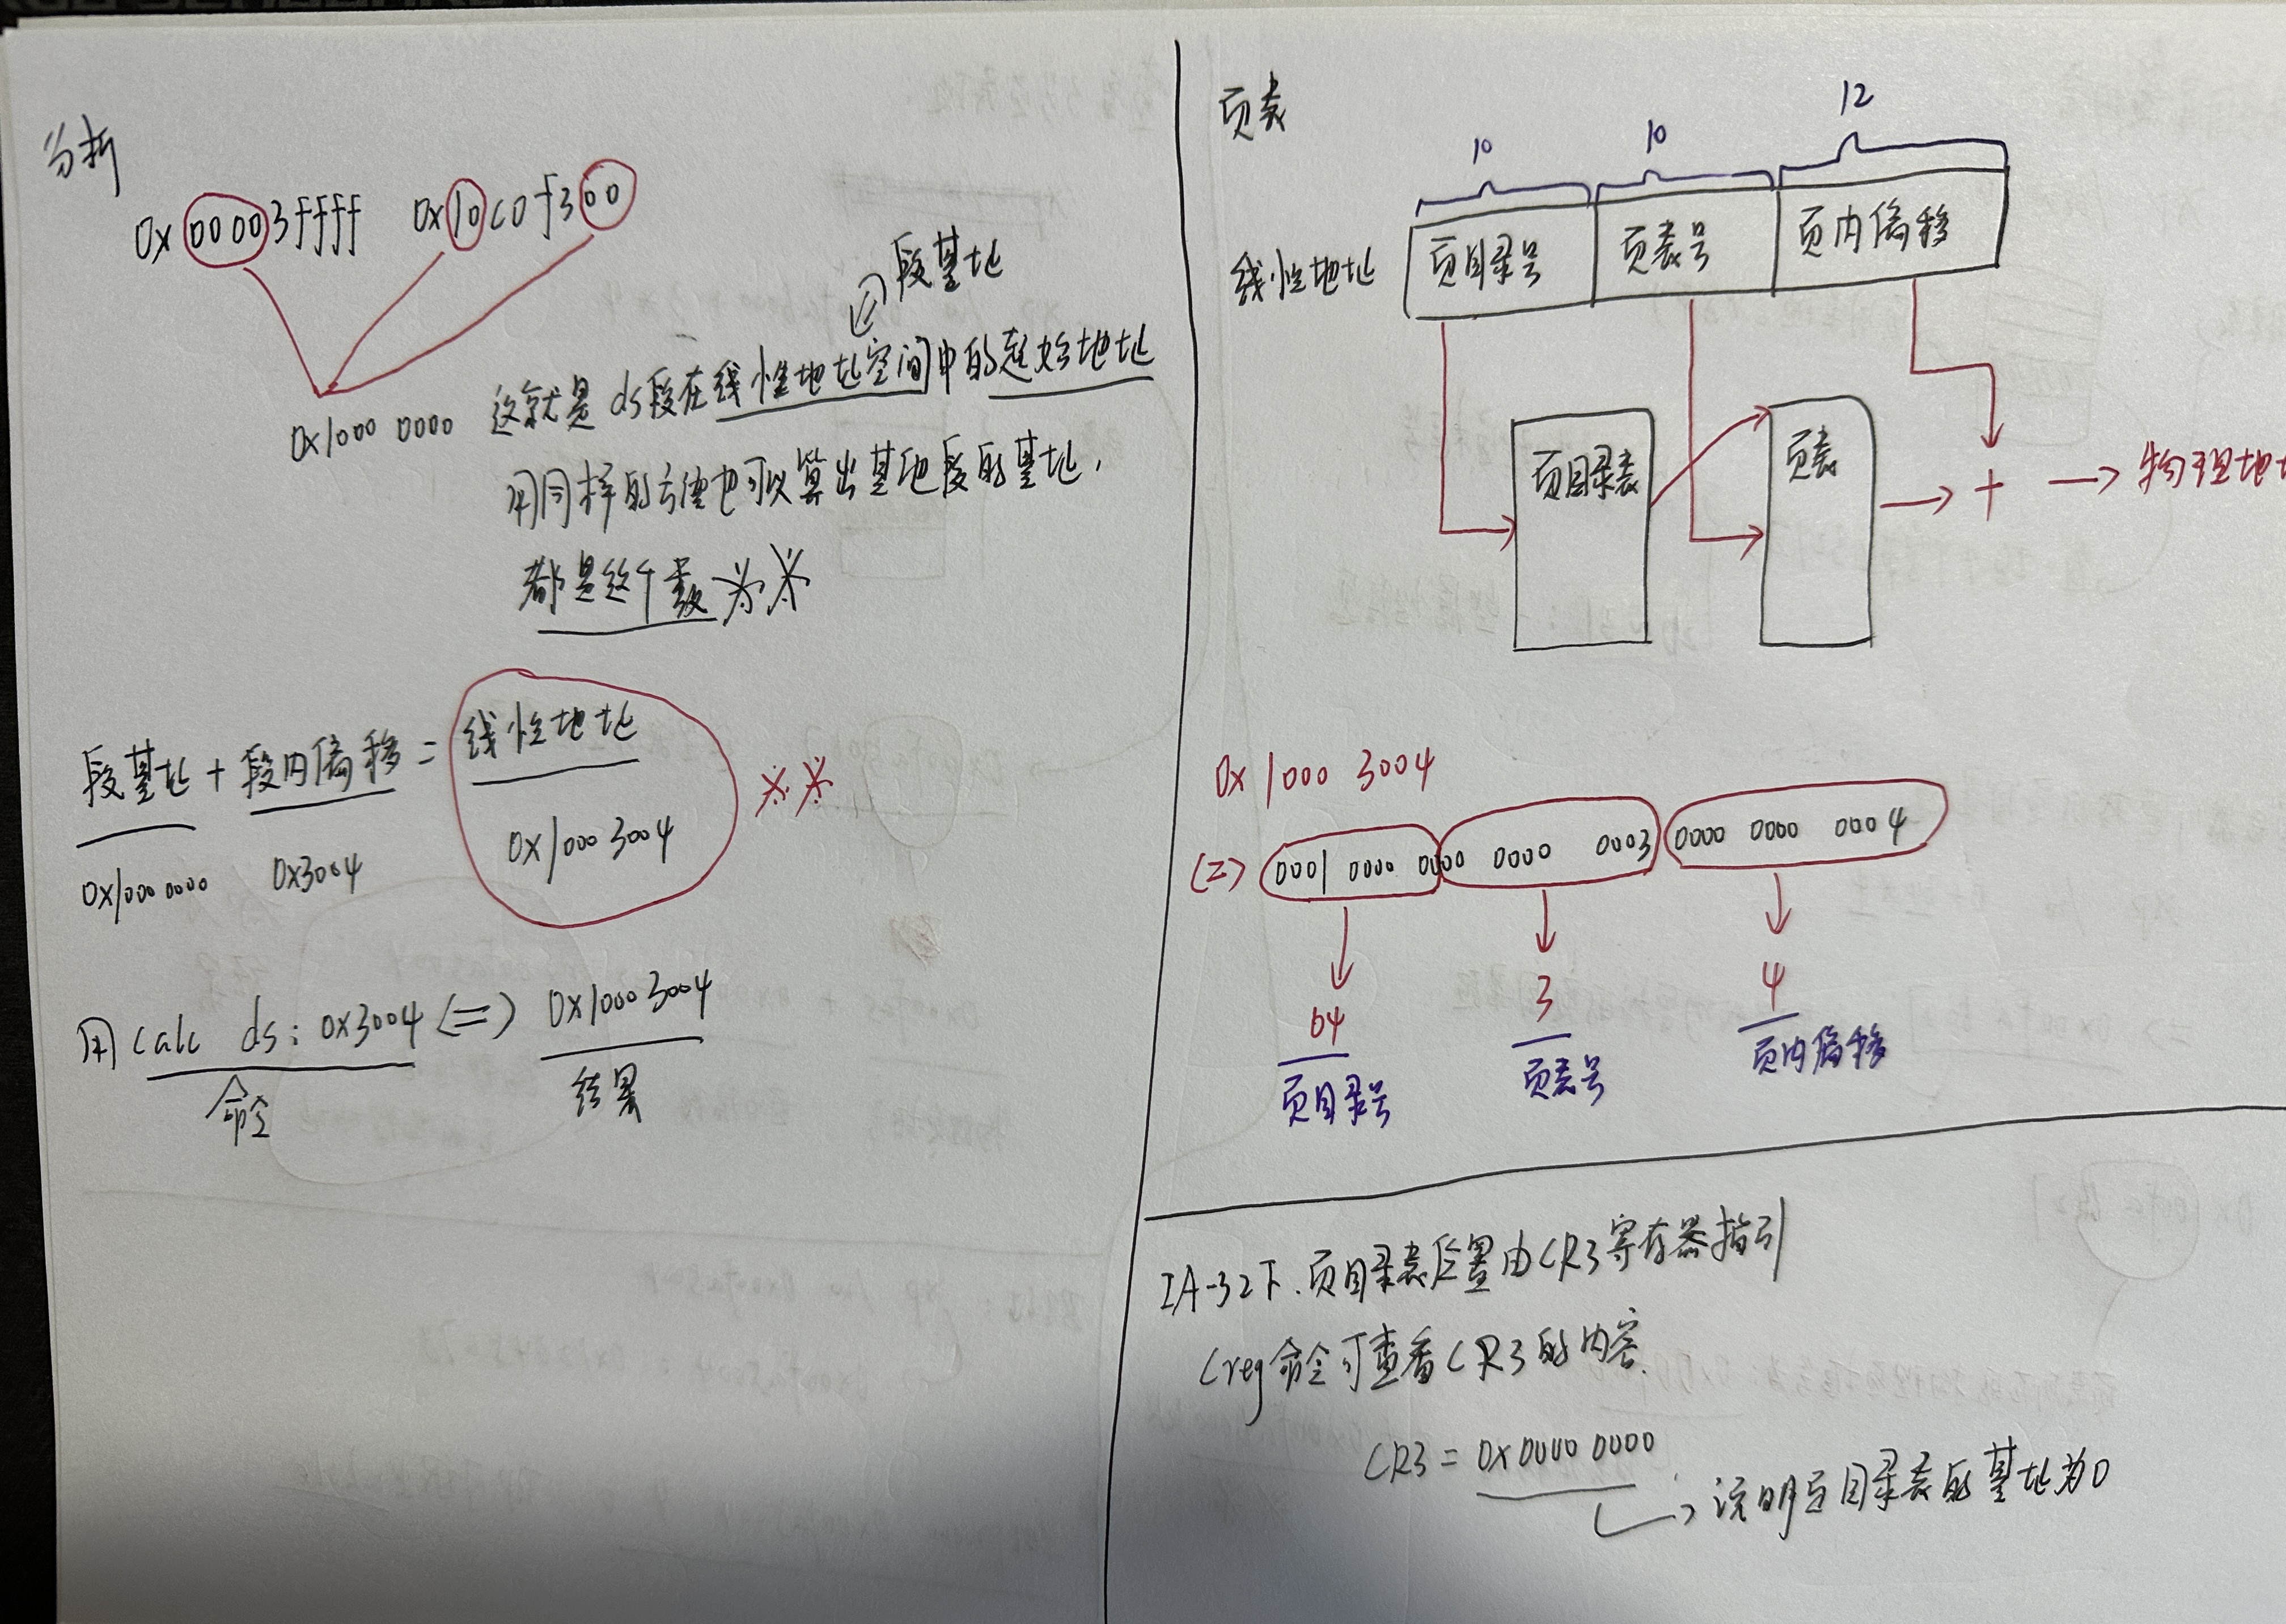 分析
0x00003ffff 0x10c0f300
段基址
0x1000 0000 这就是 ds段在线性地址空间中的起始地址
用同样的方法也可以算出其他段的基址,
都是这个数 ※※
段基址 + 段内偏移 = 线性地址 ※※
0x1000 0000 0x3004 0x1000 3004
用 calc ds: 0x3004 <=> 0x1000 3004
命令 结果
页表
10 10 12
线性地址 页目录号 页表号 页内偏移
页目录表 页表 + → 物理地址
0x 1000 3004
(=) 0001 0000 0000 0000 0003 0000 0000 0004
64 3 4
页目录号 页表号 页内偏移
IA-32下.页目录表位置由CR3寄存器指引
Creg命令可查看CR3的内容.
CR3 = 0x0000 0000
说明页目录表的基址为0